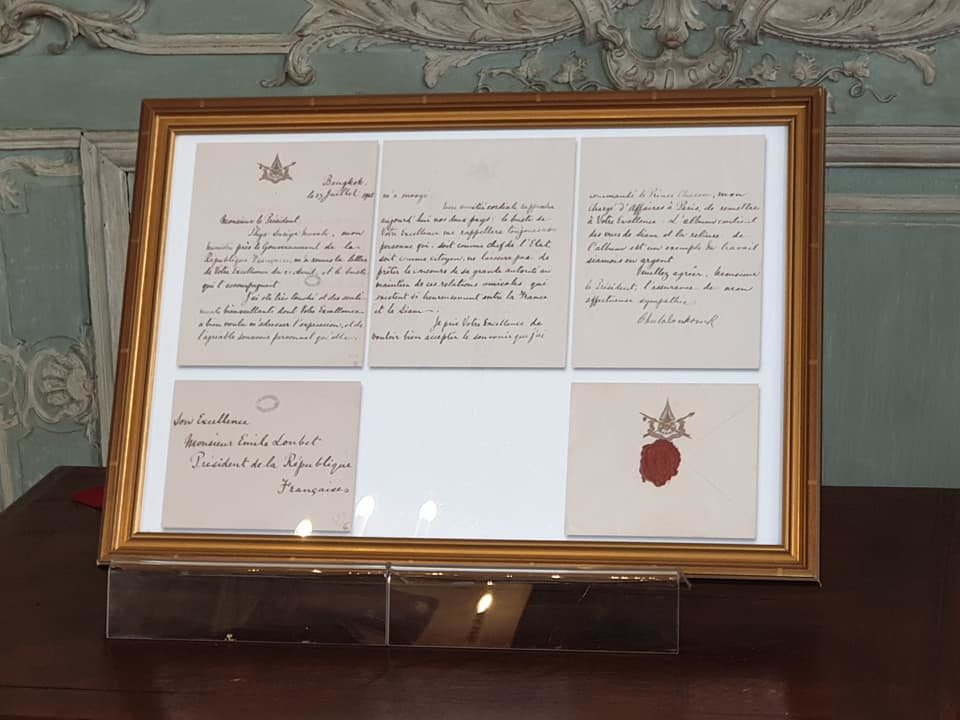 Bangkok,
le 23 Juillet
Monsieur le Président,
Phya Suriya Nuvatr, mon
ministre près le Gouvernement de la
République Française, m'a remis la lettre
de Votre Excellence du et le buste
qui l'accompagnait.
J'ai été très touché et des senti-
ments bienveillants dont Votre Excellence
a bien voulu m'adresser l'expression, et de
l'agréable souvenir personnel qu'elle
m'a envoyé.
Une amitié cordiale rapproche
aujourd'hui nos deux pays: le buste de
Votre Excellence me rappellera toujours une
personne qui, soit comme chef de l'Etat
soit comme citoyen, ne laissera pas de
prêter le concours de sa grande autorité au
maintien de ces relations amicales qui
existent si heureusement entre la France
et le Siam.
Je prie Votre Excellence de
vouloir bien accepter le souvenir que j'ai
commandé le Prince Charoon, mon
Chargé d'Affaires à Paris, de remettre
à Votre Excellence. L'album contient
des vues de Siam et la reliure de
l'album est un exemple du travail
siamois en argent.
Veuillez agréer, Monsieur
le Président, l'assurance de mon
affectueuse sympathie.
Chulalonkorn R.
Son Excellence
Monsieur Emile Loubet
Président de la République
Française